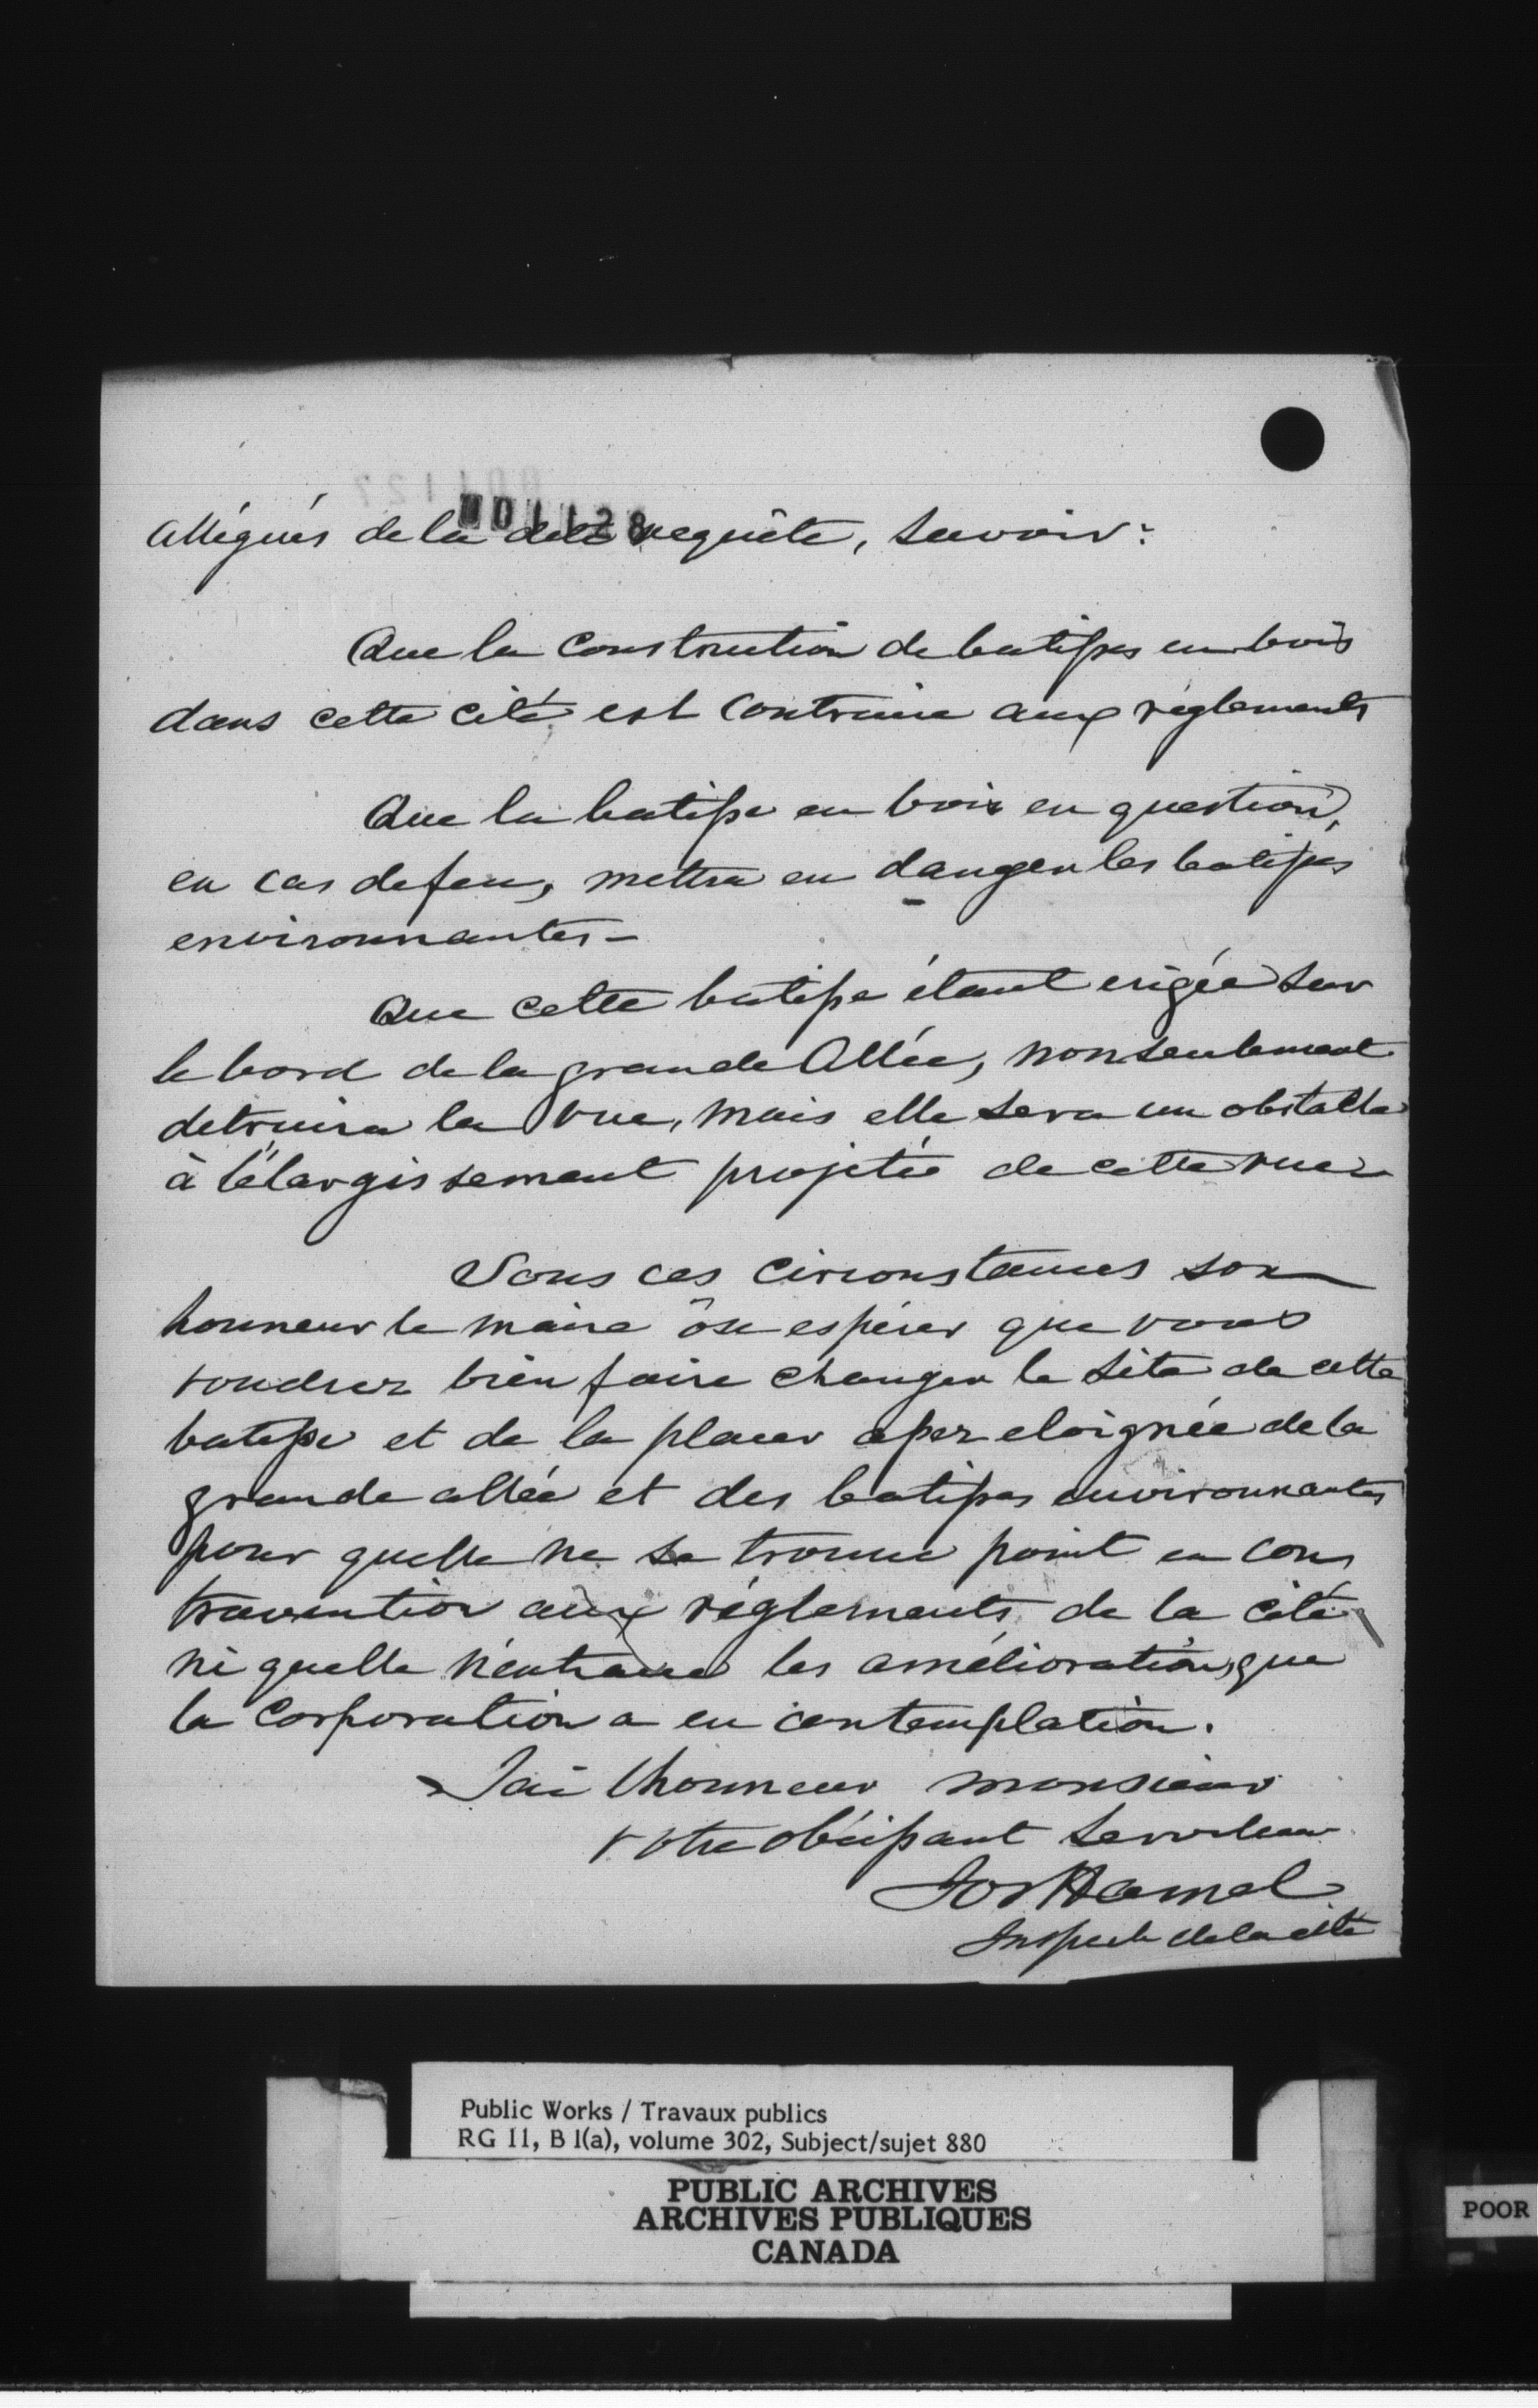 001128
allégués de la dite requête, savoir:
Que la construction de batisses en bois
dans cette cité est contraire aux règlements
Que la batisse en bois en question,
en cas de feu, mettra en danger les batisses
environnantes -
Que cette batisse étant erigée sur
le bord de la grande Allée, non seulement
detruira la vue, mais elle sera un obstacle
à l'élargissement projetée de cette rue
Sous ces circonstances son
honneur le maire ôse espérer que vous
voudrez bien faire changer le site de cette
batisse et de la placer assez eloignée de la
grande allée et des batisses environnantes
pour quelle ne se trouve point en con
travention aux règlements de la cité
ni quelle n'entrave les améliorations que
la Corporation a en contemplation.
J'ai l'honneur monsieur
votre obéissant serviteur
Jos Hamel
Inspectr de la cité
Public Works / Travaux publics
RG 11, B 1(a), volume 302, Subject/sujet 880
PUBLIC ARCHIVES
ARCHIVES PUBLIQUES
CANADA
POOR